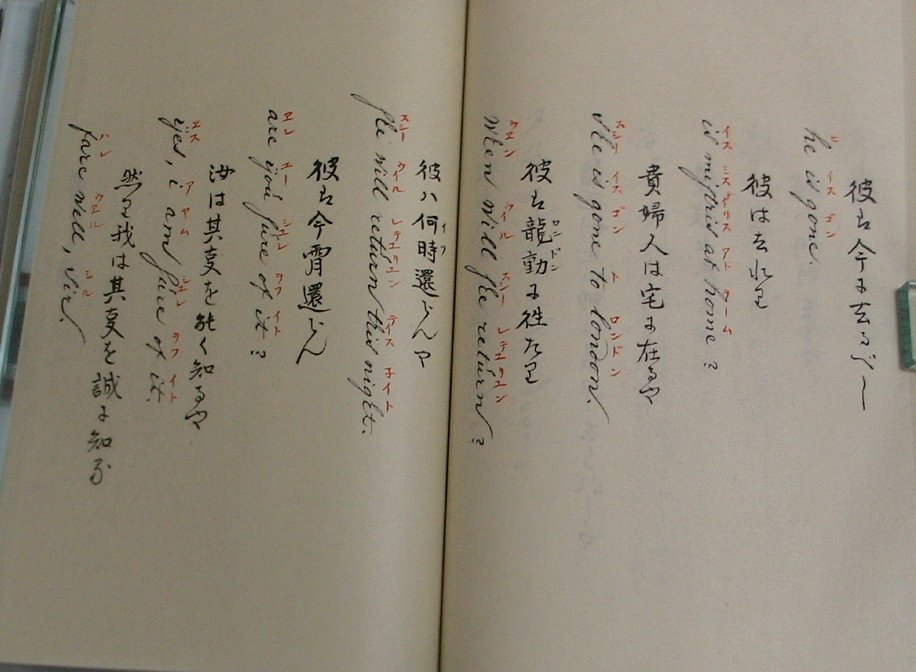 彼は今に去るべし
ヒ イス ゴン
he is gone.
彼は去れり
イス ミスタリス アト ヲーム
is mistris at home?
貴婦人は宅に在るや
スシー イス ゴン ト ロンドン
she is gone to london.
ロンドン
彼は龍動に徃たり
ウエン ウイル スシー レテユリエン
when will she return?
イツ
彼ハ何時還らんや
スシー ウイル レテユリエン ディス ネイト
she will return this night.
彼は今霄還らん
エレ ユー シュレ ヲフ イト
are you sure of it?
汝は其事を能く知るや
エス アイ アム シュレ ヲフ イト
yes, i am sure of it.
然り我は其事を誠に知る
ウエル シル
fare well, sir.